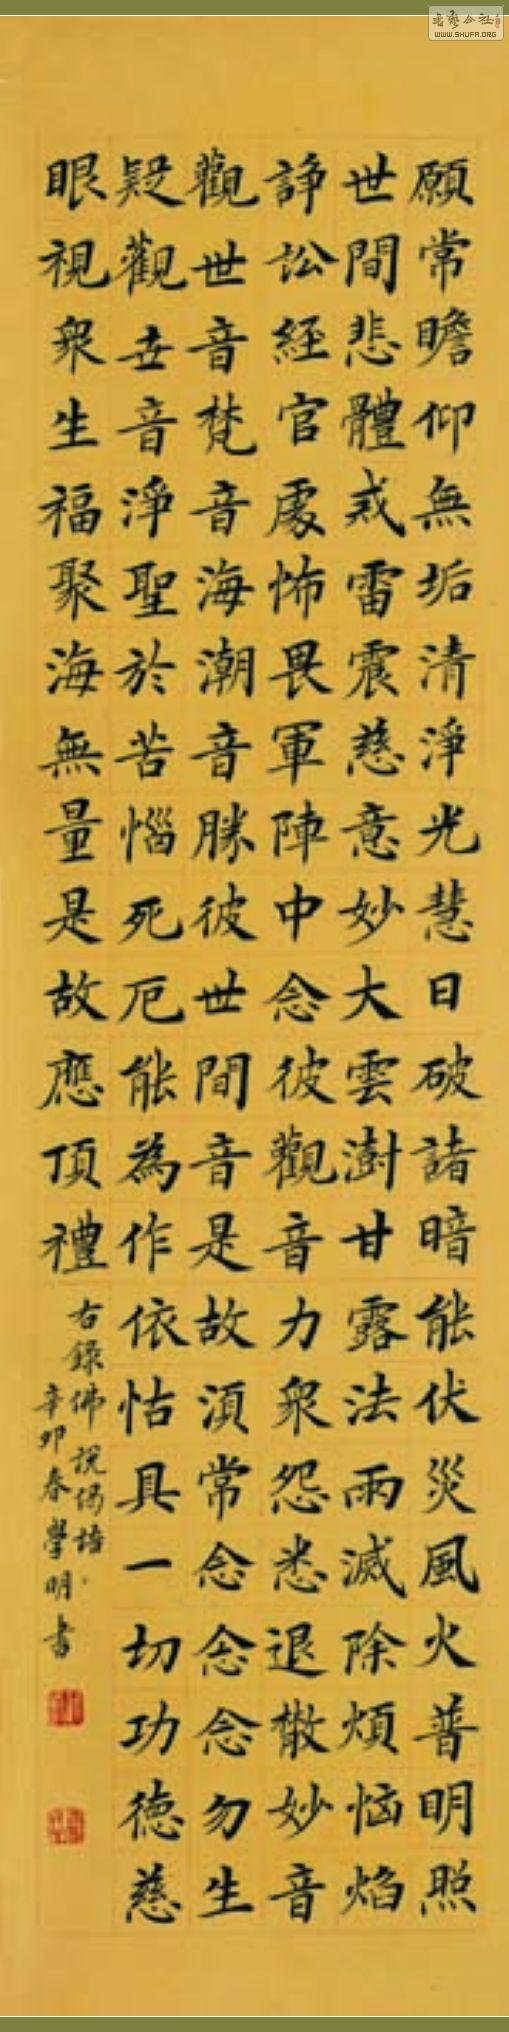 願常瞻仰無垢清淨光慧日破諸暗能伏災風火普明照
世間悲體戒雷震慈意妙大雲澍甘露法雨滅除煩惱焰
諍訟經官處怖畏軍陣中念彼觀音力眾怨悉退散妙音
觀世音梵音海潮音勝彼世間音是故須常念念念勿生
疑觀世音淨聖於苦惱死厄能為作依怙具一切功德慈
眼視眾生福聚海無量是故應頂禮
右錄佛說偈語
辛卯春學明書
WWW.SHUFA.ORG